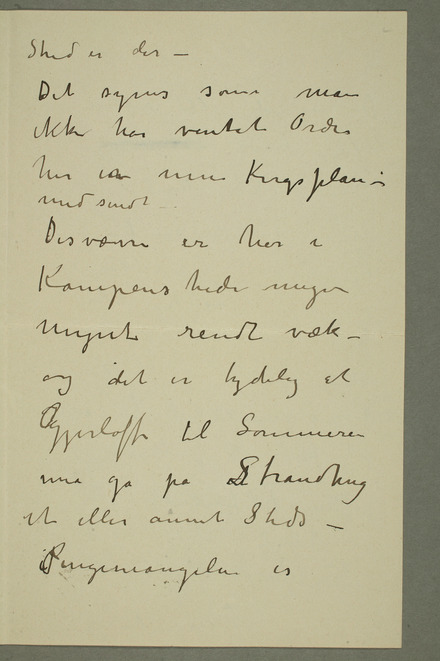 Sted er der –
Det synes som man
ikke har ventet Ordre
her en min Krigsplan –
medsendt –
Desværre er her i
Kampens hede meget
mynt rendt væk –
og det er tydelig at
til Sommeren
må gå på Strandhug
et eller annet Steds –
Pengemangelen er